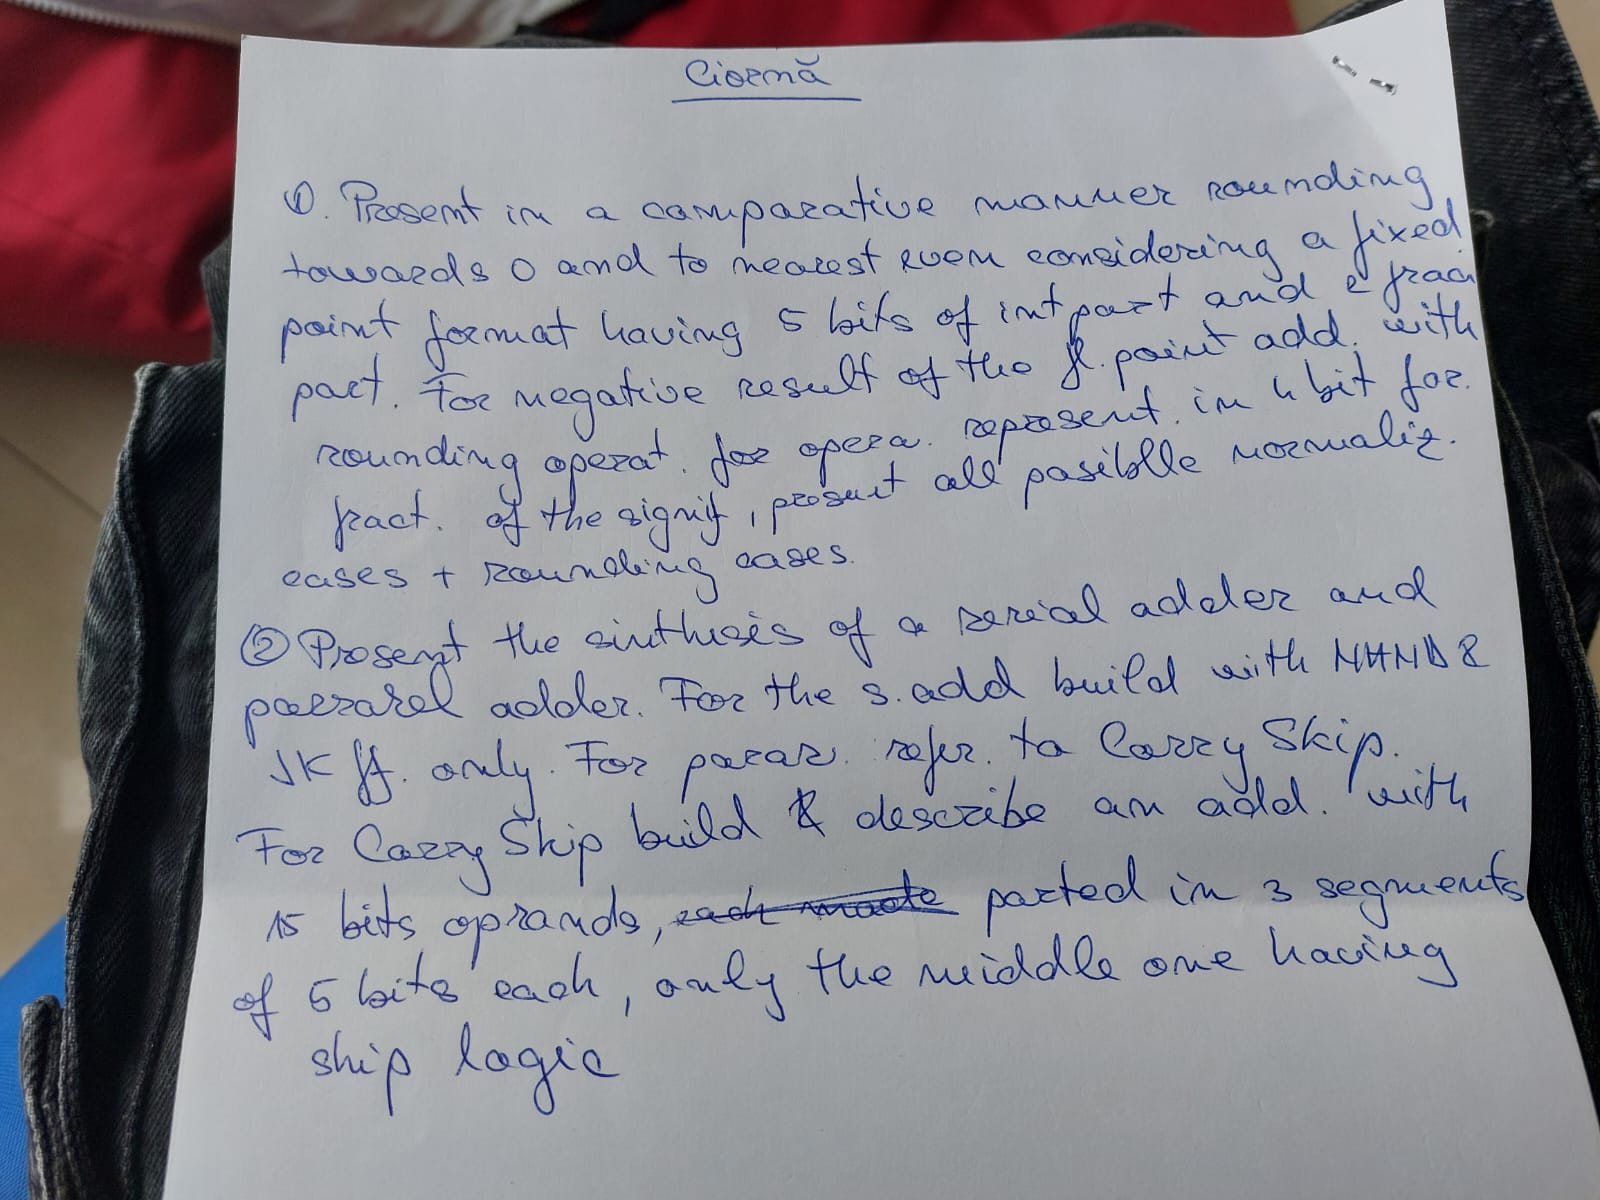 Ciornă
①. Present in a comparative manner rounding
towards 0 and to nearest even considering a fixed
point format having 5 bits of int part and 2 frac
part. For negative result of the fl. point add. with
rounding operat. for opera. represent. in 4 bit for.
fract. of the signif, present all pasiblle normaliz.
cases + rounding cases.
② Present the sinthesis of a serial adder and
parrarel adder. For the s. add build with NAND &
JK ff. only. For parar. refer. to Carry Skip.
For Carry Skip build & describe an add. with
15 bits oprands, each made parted in 3 segments
of 5 bits each, only the middle one having
skip logic